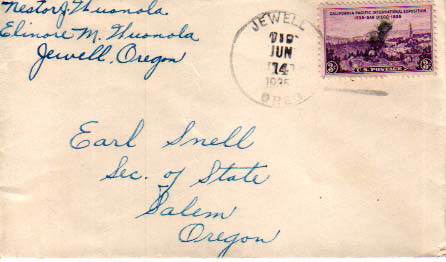 Nestor J. Wuonola
Elinore M. Wuonola
Jewell, Oregon
JEWELL
JUN
14
1935
OREG.
CALIFORNIA PACIFIC INTERNATIONAL EXPOSITION
1935-SAN DIEGO-1936
3¢ U.S. POSTAGE 3¢
Earl Snell
Sec. of State
Salem
Oregon